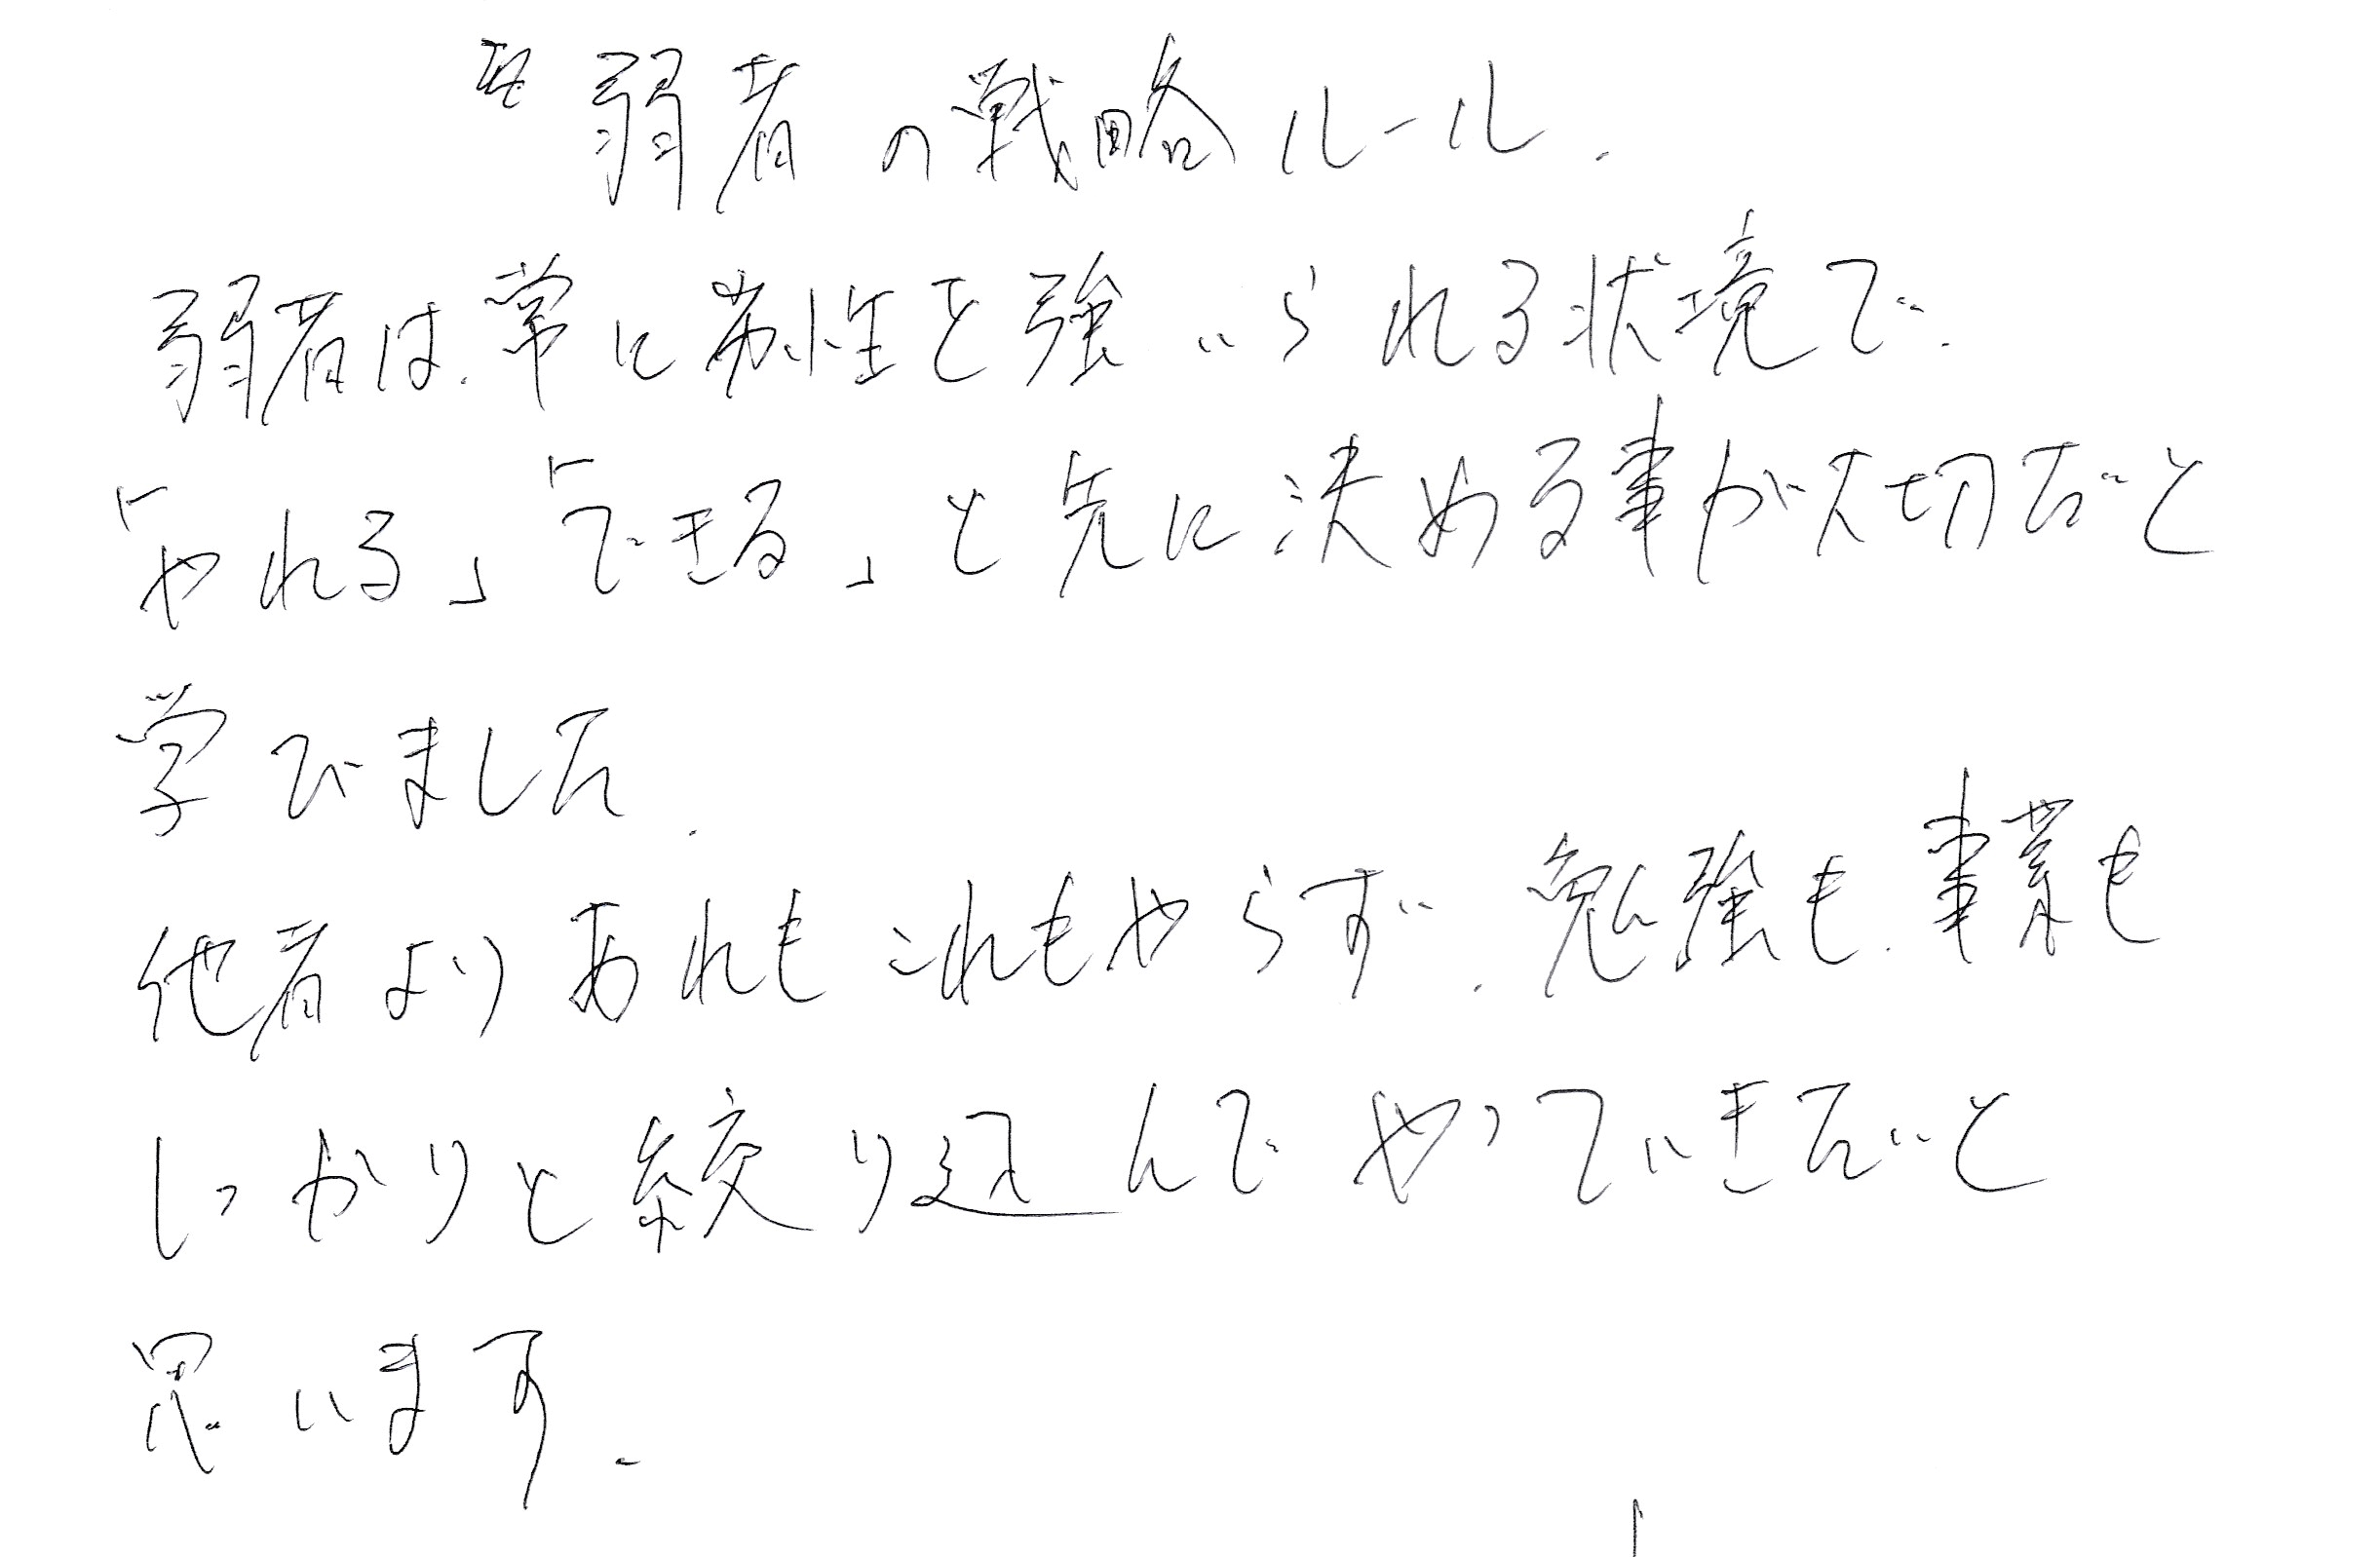 弱者の戦略ルール.
弱者は.常に劣性を強いられる状境で.
「やれる」「できる」と先に決める事が大切だと
学びました.
他者よりあれもこれもやらず.勉強も.事業も
しっかりと絞り込んでやっていきたいと
思います.